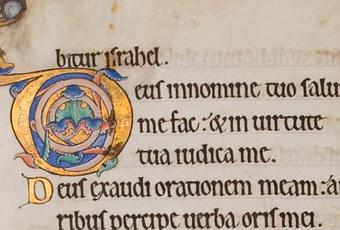 bitur israhel.
Deus innomine tuo salu
me fac: & in uirtute
tua iudica me.
Deus exaudi orationem meam: a
ribus percipe uerba oris mei.